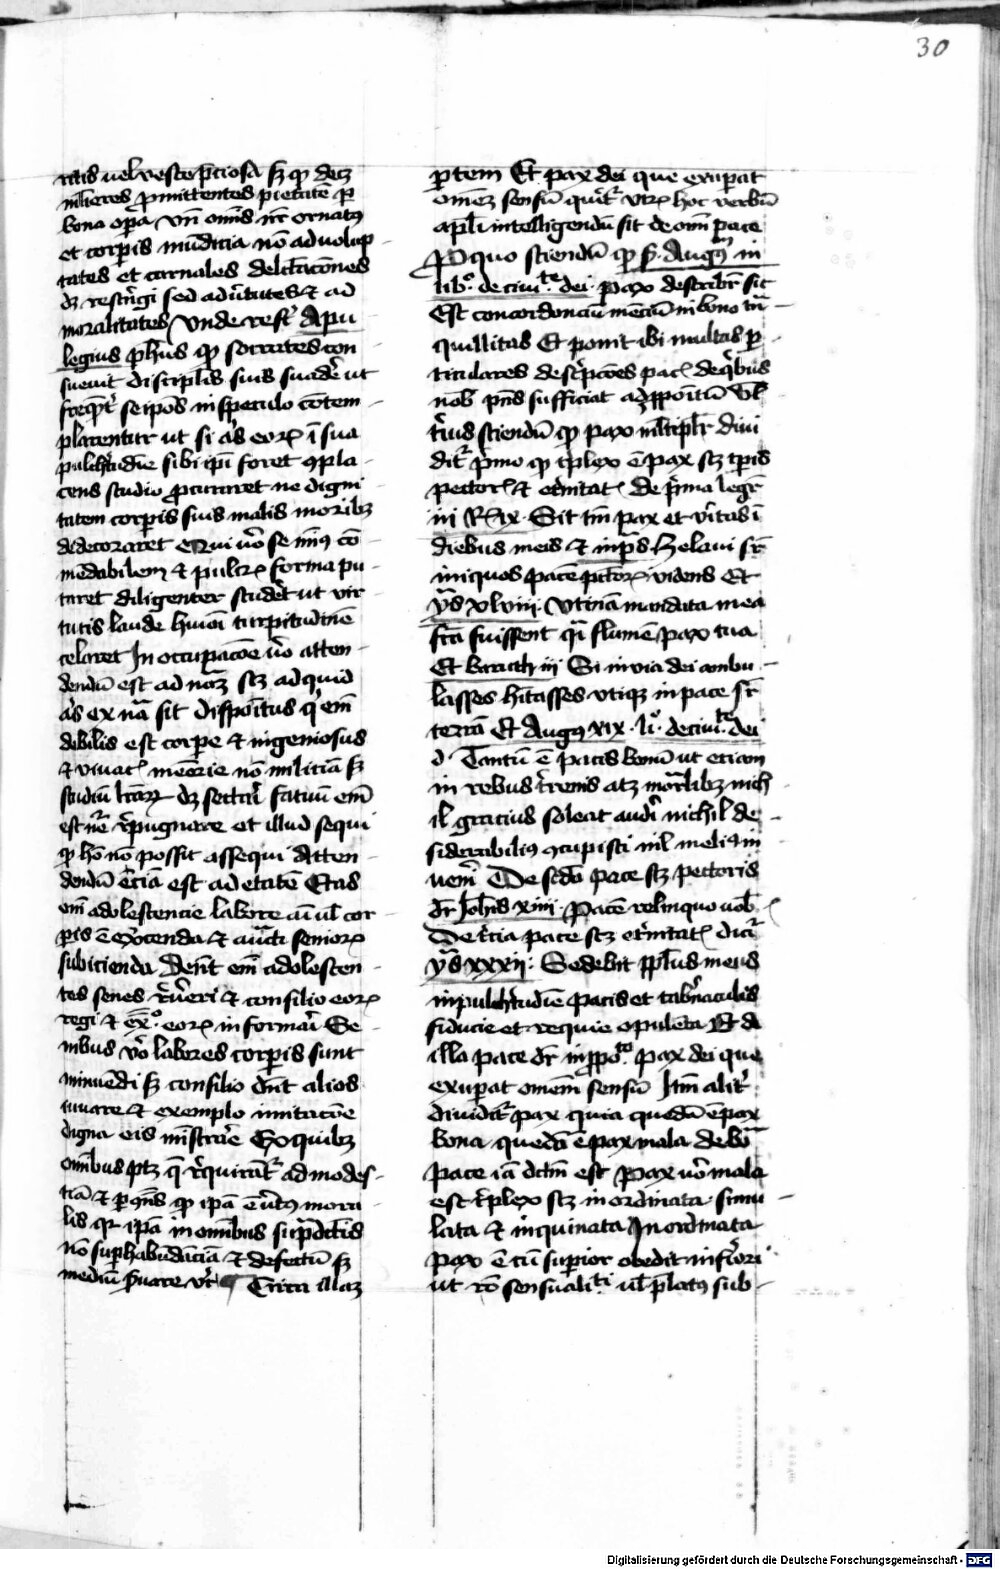 30
ritis uel veste p̄ciosa sꝫ ꝙ decꝫ
mlieres ꝓmittentes pietatē ꝑ
bona oꝑa vn̄ om̄is nr̄ ornatꝰ
et corꝑis mūdicia nō ad volup
tates et carnales delectacōnes
dꝫ restrīgi sed ad v̄tutes ⁊ ad
moralitates Vnde refert̉ Apu
legius ph̄us ꝙ socrates con
sueuit discipl̄is suis suadē ut
seipōs in speculo cōtem
plarentur ut si aĺs eoꝝ ī sua
pulch̄tudīe sibi ip̄i foret ꝯpla
cens studio ꝓcuraret ne digni
tatem corꝑis suis malis moribꝫ
dedecoraret Qui v̄o se min̄ꝰ cō
mēdabilem ⁊ pulcꝝ forma pu
taret diligenter studēt ut vir
tutis laude huiꝰmōi turpitudinē
celaret In occupacōe v̄o atten
dendū est ad naꝫ scꝫ ad quid
aĺs ex nā sit dispoītus qꝛ em̄
debilis est corpe ⁊ ingeniosus
⁊ viuac̄ memōrie nō miliciā sꝫ
studiū lr̄aꝝ dꝫ sectari fatuū em̄
est ne̅ r̄pugnare et illud sequi
ꝙ hō nō possit assequi Atten
dendū eciā est ad etatē Etas
em̄ adolescencie labore aĺi ul̄ cor
ꝑis ē ex̄cenda ⁊ aucti senioꝝ
subicienda Dent em̄ adolescen
tes senes r̄u̅eri ⁊ consilio eoꝝ
regi ⁊ ex̄o eoꝝ informari Se
nibus v̄o labores corꝑis sunt
minuēdi sꝫ consilio dn̄t alios
iuuare ⁊ exemplo imitacōe
digna eis mīstrare Ex quibꝫ
om̄ibus ptꝫ q̄ r̄quirāt̉ ad modes
tiā ⁊ ꝑ ꝯn̄s ꝙ ip̄a ē v̄tus mora
lis qꝛ ip̄a in om̄ibus supradictis
nō suꝑhabūdāciā ⁊ defectū sꝫ
mediū s̄uare vr̄ Circa illaꝫ
ꝑtem Et pax dei que exuꝑat
omēꝫ sensū querit̉ vtꝝ hoc verbū
apl̄i intelligendū sit de om̄i pace
Pro quo sciendū ꝙ s. Augꝰ in
lib.º de ciui.te dei pax describit̉ sic
Est concordanciū mēciū in bono trā
quillitas Et ponit ibi multas ꝑ
ticulares descripcōes pac̄ de qͥbus
nob̄ pn̄s sufficiat ad ꝓpoītū Vl̄
t̄ius sciendū ꝙ pax ml̄tiplr̄ diui
dit̉ Primo ꝙ tplex ē pax scꝫ tꝑis
pectoꝝ ⁊ et̄nitat̄ De p̄ma legr̄
iiii Rꝝ ix. Sit tm̄ pax et v̄itas ī
diebus meis ⁊ in p̄s Zelaui sr̄
iniquos pacē pctoꝝ videns Et
ys̄ xlviii. Vtinā mandata mea
fc̄a fuissent qͣi flumē pax tua
Et baruch iii Si in via dei ambu
lasses hitasses vtiqꝫ in pace sr̄
terrā Et Augꝰ xix. li. de ciui.te dei
d. Tantū ē pacis bonū ut eciam
in rebus t̄renis atꝫ mortalibꝫ nich
il gracius soleat audiri nichil de
siderabilius ꝯcupisci nil meliꝰ in
ueniri De scd̄a pace scꝫ pectoris
dr̄ Joh̄is xiiii. Pacē relinquo vob̄
De t̄cia pace scꝫ et̄nitat̄ dicit̉
ys̄ xxxii: Sedebit ppl̄us meus
in pulch̄tudīe pacis et tab̄naculis
fiducie et requie opulēta Et de
illa pace dr̄ in ꝓpoº. pax dei que
exuꝑat omēm sensū Itm̄ alit̉
diuidit̉ pax quia quedā ē pax
bona quedā ē pax mala de bōa
pace iā dictm̄ est Pax v̄o mala
est t̄plex scꝫ inordinata simu
lata ⁊ inquinata Inordinata
pax ē cū suꝑior obedit inferiori
ut rō sensuali.ti ul̄ p̄latꝰ sub
Digitalisierung gefördert durch die Deutsche Forschungsgemeinschaft - DFG